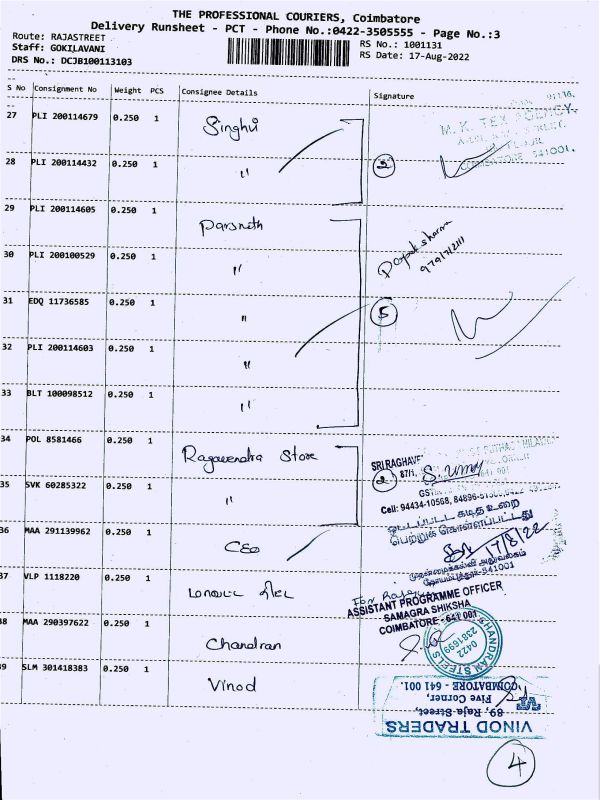 THE PROFESSIONAL COURIERS, Coimbatore
Delivery Runsheet - PCT - Phone No.:0422-3505555 - Page No.:3
Route: RAJASTREET
Staff: GOKILAVANI
DRS No.: DCJB100113103
RS No.: 1001131
RS Date: 17-Aug-2022
S No Consignment No Weight PCS Consignee Details Signature
27 PLI 200114679 0.250 1 Singhvi
M.K. TEX AGENCY
28 PLI 200114432 0.250 1 "
2
COIMBATORE 641001.
29 PLI 200114605 0.250 1 Parsnath
30 PLI 200100529 0.250 1 "
31 EDQ 11736585 0.250 1 "
5
32 PLI 200114603 0.250 1 "
33 BLT 100098512 0.250 1 "
34 POL 8581466 0.250 1 Ragavendra Store
SRI RAGHAVE
2
87/1,
641 001
Cell: 94434-10568, 84896-
35 SVK 60285322 0.250 1 "
ஒட்டப்பட்ட கடித உறை
பெற்றுக் கொள்ளப்பட்டது
36 MAA 291139962 0.250 1 CEO
17/8/22
641001
37 VLP 1118220 0.250 1
For
ASSISTANT PROGRAMME OFFICER
SAMAGRA SHIKSHA
COIMBATORE - 641 001
38 MAA 290397622 0.250 1 Chandran
CHANDRAN STEELS
0422
2381699
39 SLM 301418383 0.250 1 Vinod
VINOD TRADERS
89, Raja Street,
Five Corner,
COIMBATORE - 641 001.
4